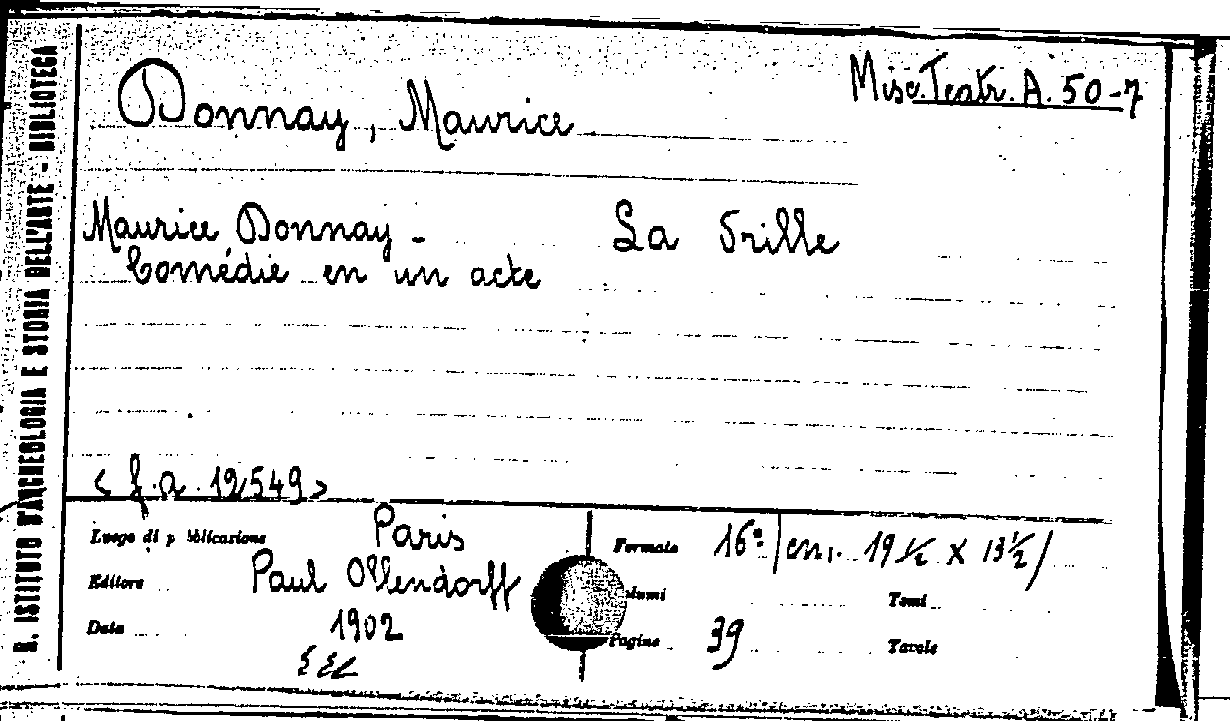 R. ISTITUTO D'ARCHEOLOGIA E STORIA DELL'ARTE - BIBLIOTECA
Misc. Teatr. A. 50-7
Donnay, Maurice
Maurice Donnay - La Vrille
Comédie en un acte
<f.a. 12549>
Luogo di pubblicazione Paris
Editore Paul Ollendorff
Data 1902
Formato 16º /cm. 19 ½ x 13 ½/
Volumi Tomi
Pagine 39 Tavole